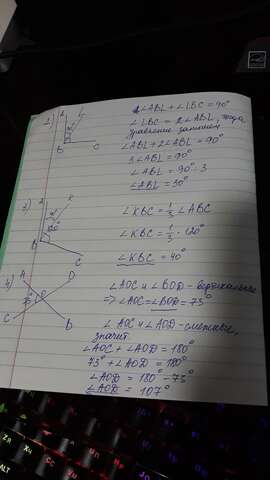 2)
∠ABL + ∠LBC = 90°
∠LBC = 2∠ABL, тогда
уравнение запишем
∠ABL + 2∠ABL = 90°
3∠ABL = 90°
∠ABL = 90° : 3
∠ABL = 30°
B C
3)
∠KBC = 1/3 ∠ABC
∠KBC = 1/3 · 120°
∠KBC = 40°
K
B
C
4)
A D
O
C B
∠AOC и ∠BOD - вертикальные
⇒ ∠AOC = ∠BOD = 73°
∠AOC и ∠AOD - смежные,
значит
∠AOC + ∠AOD = 180°
73° + ∠AOD = 180°
∠AOD = 180° - 73°
∠AOD = 107°
ALT